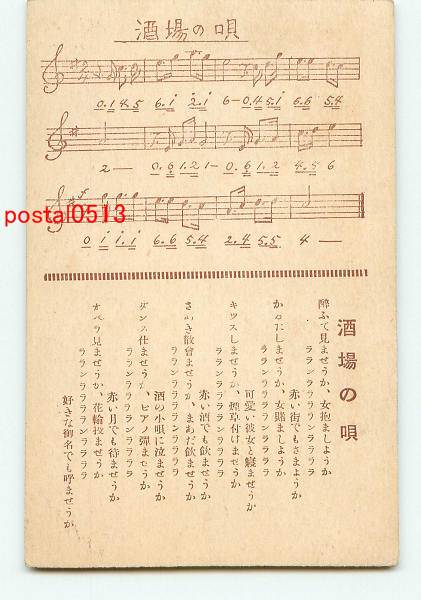 酒場の唄
0.1 4.5 6.i 2.i 6— 0.4 5.i 6.6 5.4
2— 0.6 1.2 1— 0.6 1.2 4.5 6
0 i i.i 6.6 5.4 2.4 5.5 4 —
postal0513
酒場の唄
醉ふて見ませうか、女抱ましようか
ラララランランランラララ
赤い街でもさまようか
女賭ましようか
ラララランランランラララ
可愛い彼女と寢ませうか
キツスしませうか、煙草付けませうか
ラララランランランラララ
赤い酒でも飲ませうか
まあだ飲ませうか
ラララランランランラララ
酒の小唄に泣ませうか
ダンス仕ませうか、ピアノ彈ませうか
ラララランランランラララ
赤い月でも待ませうか
オペラ見ませうか、花輪投ませうか
ラララランランランラララ
好きな御名でも呼ませうか